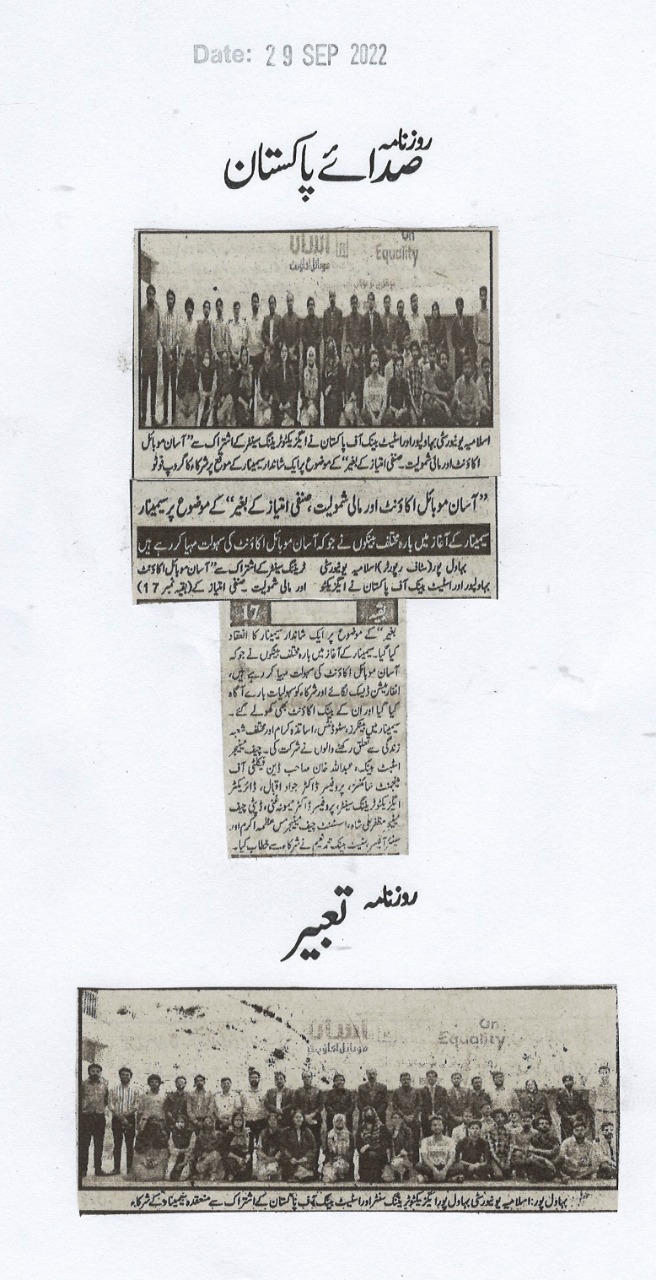 Date: 29 SEP 2022
روزنامہ
صدائے پاکستان
آسان
موبائل اکاؤنٹ
On
Equality
اسلامیہ یونیورسٹی بہاولپور اور اسٹیٹ بینک آف پاکستان نے ایگزیکٹو ٹریننگ سینٹر کے اشتراک سے ”آسان موبائل
اکاؤنٹ اور مالی شمولیت۔ صنفی امتیاز کے بغیر“ کے موضوع پر ایک شاندار سیمینار کے موقع پر شرکاء کا گروپ فوٹو
”آسان موبائل اکاؤنٹ اور مالی شمولیت، صنفی امتیاز کے بغیر“ کے موضوع پر سیمینار
سیمینار کے آغاز میں بارہ مختلف بینکوں نے جو کہ آسان موبائل اکاؤنٹ کی سہولت مہیا کر رہے ہیں
بہاول پور (سٹاف رپورٹر) اسلامیہ یونیورسٹی
بہاولپور اور اسٹیٹ بینک آف پاکستان نے ایگزیکٹو
ٹریننگ سینٹر کے اشتراک سے ”آسان موبائل اکاؤنٹ
اور مالی شمولیت۔ صنفی امتیاز کے (بقیہ نمبر 17)
بقیہ 17
بغیر“ کے موضوع پر ایک شاندار سیمینار کا انعقاد
کیا گیا۔ سیمینار کے آغاز میں بارہ مختلف بینکوں نے جو کہ
آسان موبائل اکاؤنٹ کی سہولت مہیا کر رہے ہیں،
انفارمیشن ڈیسک لگائے اور شرکاء کو سہولیات بارے آگاہ
کیا گیا اور ان کے بینک اکاؤنٹ بھی کھولے گئے۔
سیمینار میں بینکرز، سٹوڈنٹس، اساتذہ کرام اور مختلف شعبہ
زندگی سے تعلق رکھنے والوں نے شرکت کی۔ چیف مینیجر
اسٹیٹ بینک، عبداللہ خان صاحب ڈین فیکلٹی آف
مینجمنٹ سائنسز، پروفیسر ڈاکٹر جواد اقبال، ڈائریکٹر
ایگزیکٹو ٹریننگ سینٹر، پروفیسر ڈاکٹر میمونہ غنی، ڈپٹی چیف
مینیجر مظفر علی شاہ، اسسٹنٹ چیف مینیجر مس عظمہ اکرم اور
سینئر آفیسر سٹیٹ بینک محمد نعیم نے شرکاء سے خطاب کیا۔
روزنامہ
تعبیر
آسان
موبائل اکاؤنٹ
On
Equality
بہاول پور: اسلامیہ یونیورسٹی بہاول پور ایگزیکٹو ٹریننگ سنٹر اور اسٹیٹ بینک آف پاکستان کے اشتراک سے منعقدہ سیمینار کے شرکاء